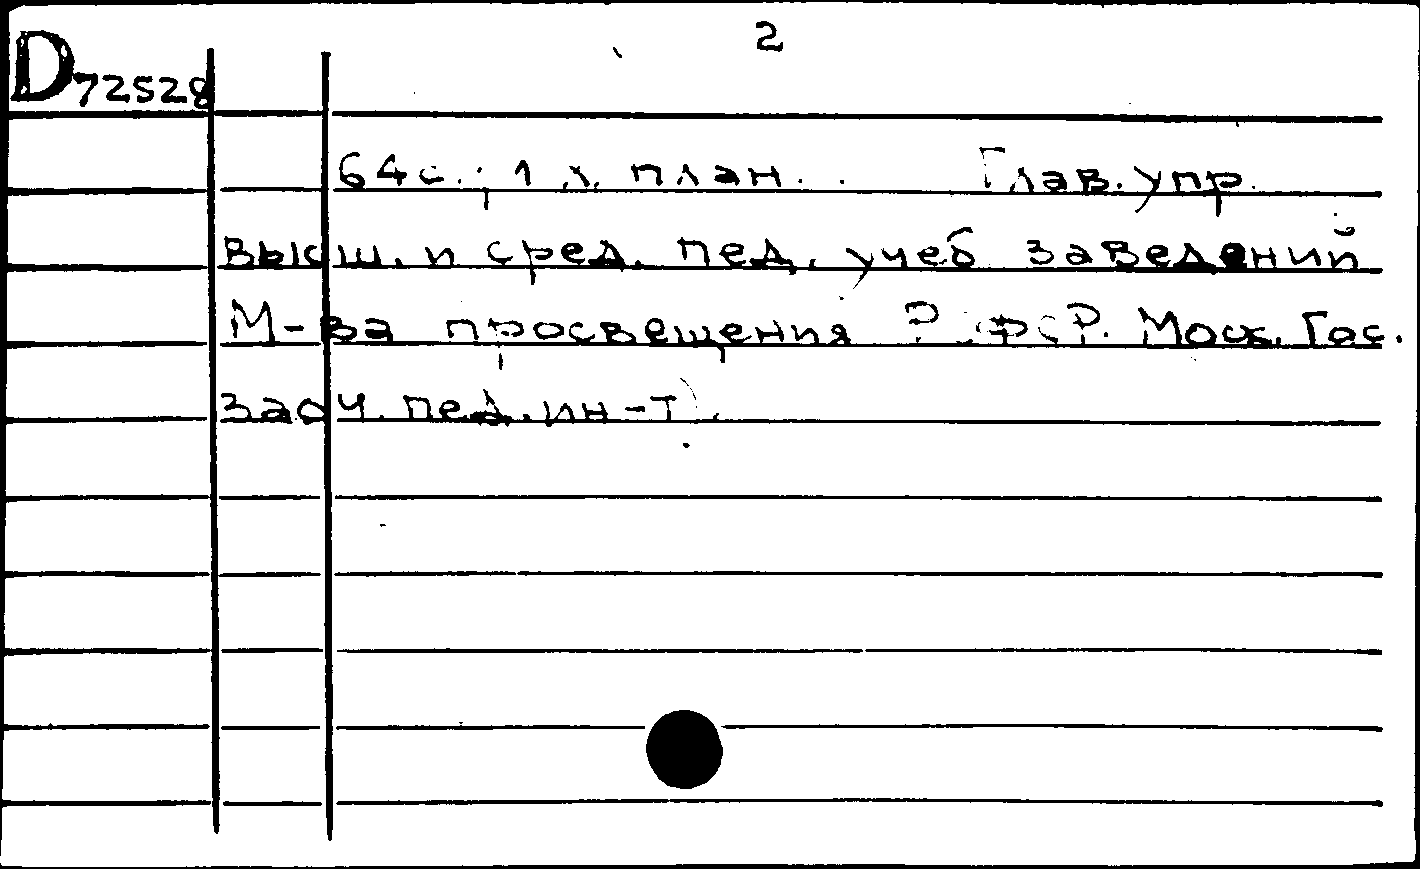 2
D72528
64с.; 1 л. план. Глав. упр.
высш. и сред. пед. учеб заведений
М-ва просвещения РСФСР. Моск. Гос.
заоч. пед. ин-т).